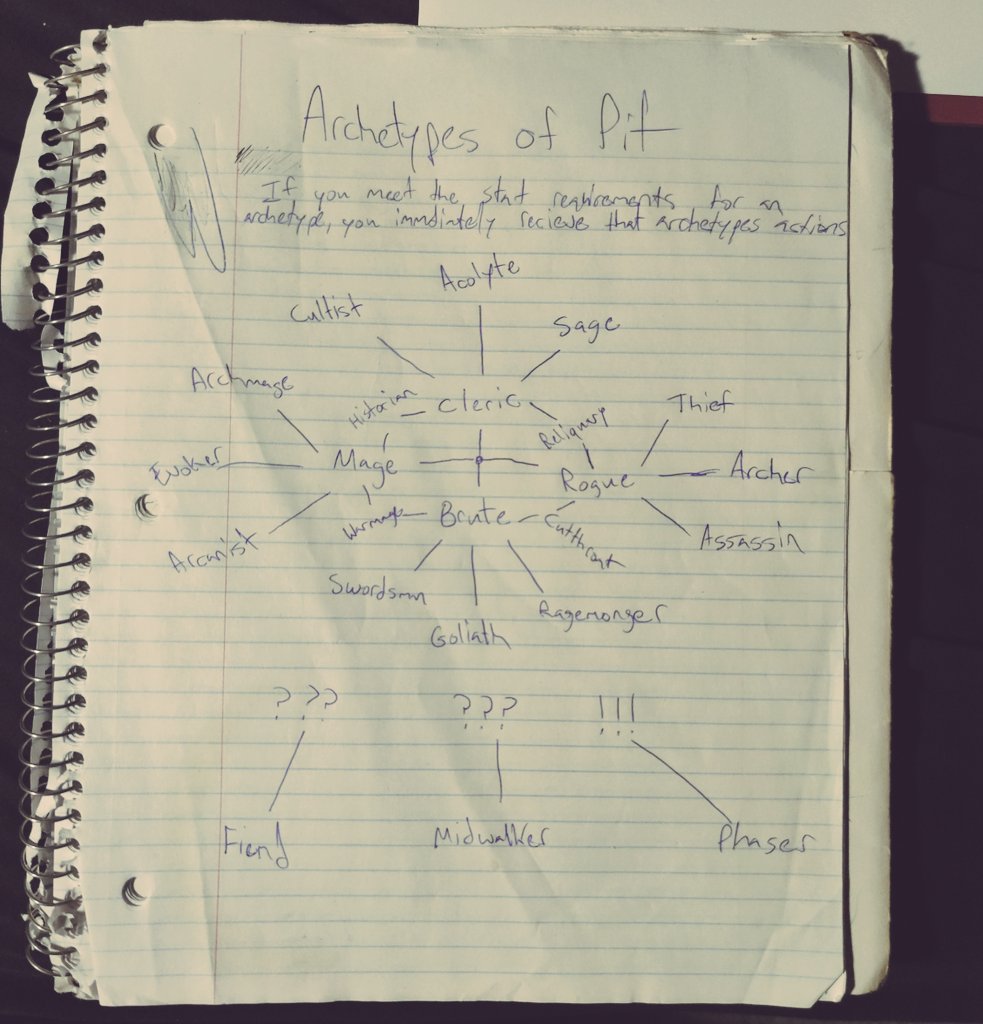 Archetypes of Pit
If you meet the stat reqirements for an
archetype, you immdiately recieve that archetypes actions
Acolyte
Cultist
Sage
Archmage
Historian
Cleric
Thief
Reliquary
Evoker
Mage
Rogue
Archer
Arcanist
Warmage
Brute
Cutthroat
Assassin
Swordsman
Goliath
Ragemonger
???
???
!!!
Fiend
Midwalker
Phaser